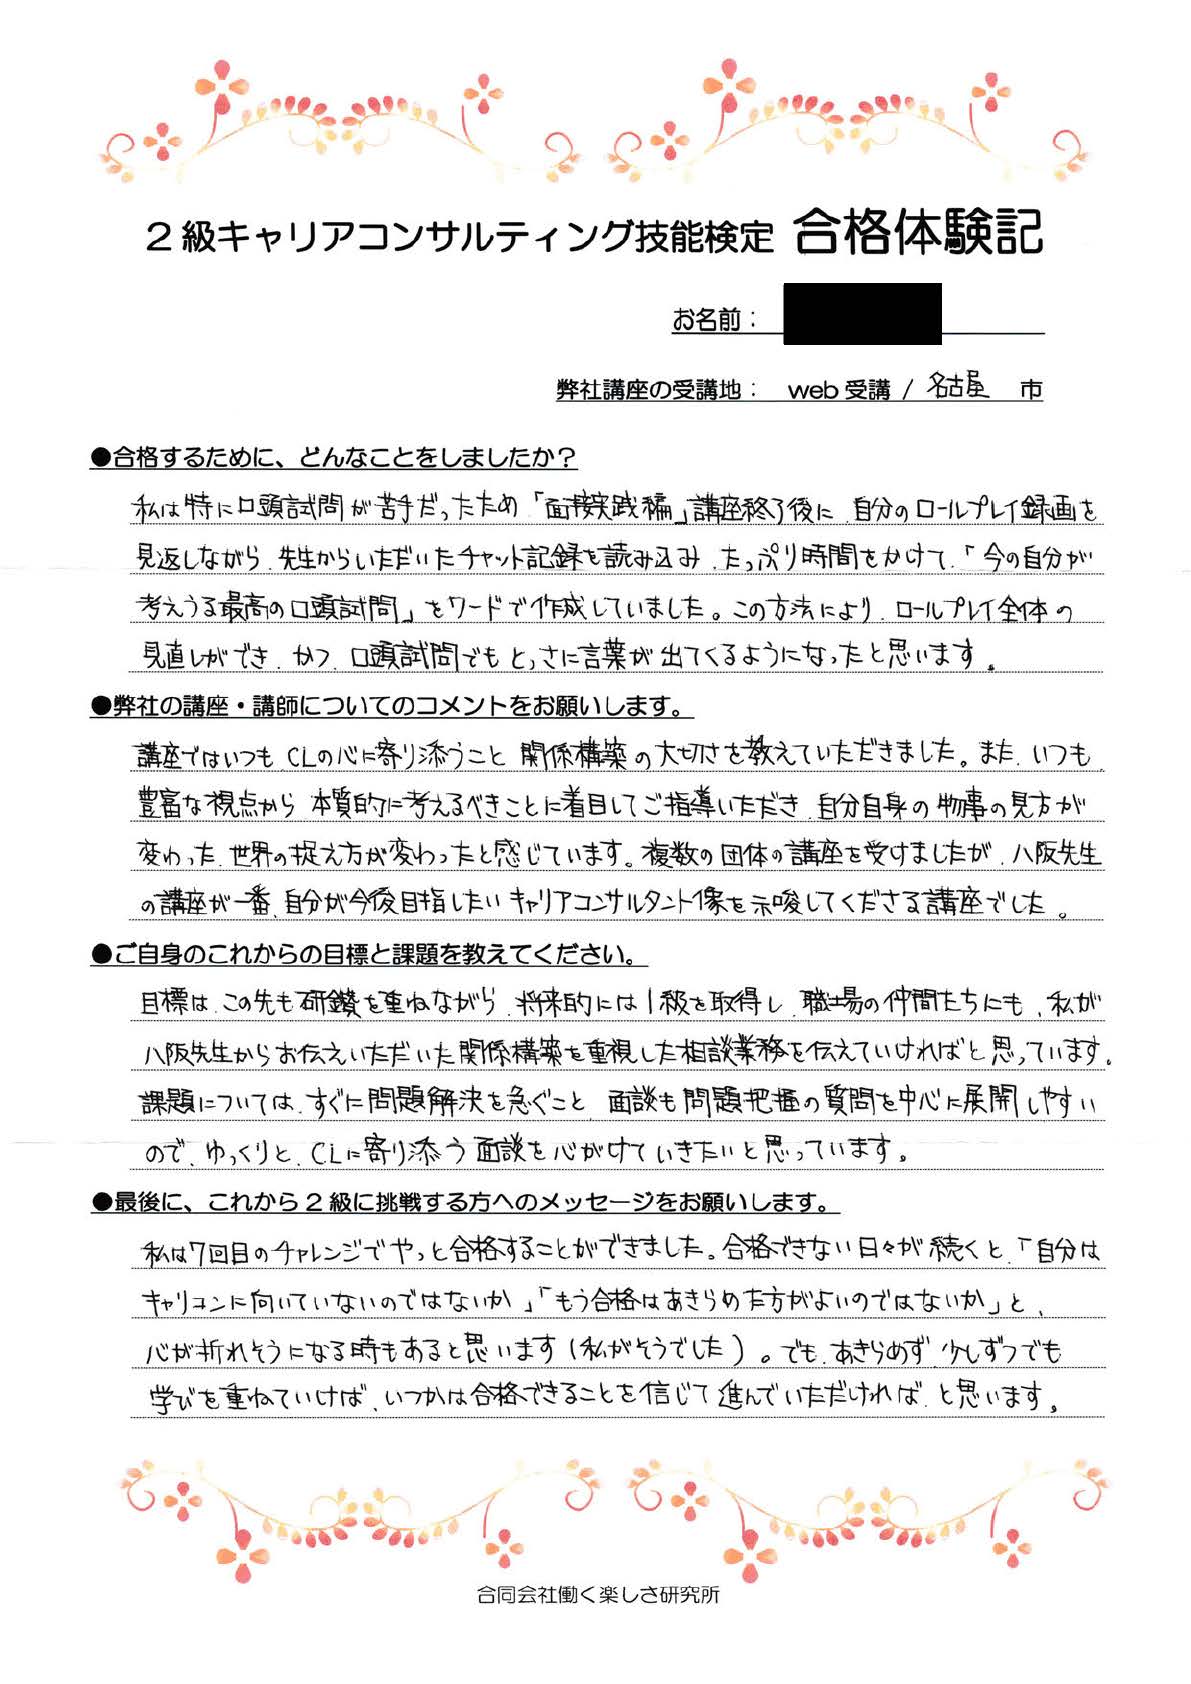 2級キャリアコンサルティング技能検定 合格体験記
お名前：
弊社講座の受講地： web 受講 / 名古屋 市
●合格するために、どんなことをしましたか？
私は特に口頭試問が苦手だったため「面接実践編」講座終了後に、自分のロールプレイ録画を
見返しながら、先生からいただいたチャット記録を読み込み、たっぷり時間をかけて、「今の自分が
考えうる最高の口頭試問」をワードで作成していました。この方法により、ロールプレイ全体の
見直しができ、かつ、口頭試問でもとっさに言葉が出てくるようになったと思います。
●弊社の講座・講師についてのコメントをお願いします。
講座ではいつも、CLの心に寄り添うこと、関係構築の大切さを教えていただきました。また、いつも、
豊富な視点から、本質的に考えるべきことに着目してご指導いただき、自分自身の物事の見方が
変わった、世界の捉え方が変わったと感じています。複数の団体の講座を受けましたが、八阪先生
の講座が一番、自分が今後目指したいキャリアコンサルタント像を示唆してくださる講座でした。
●ご自身のこれからの目標と課題を教えてください。
目標は、この先も研鑽を重ねながら、将来的には1級を取得し、職場の仲間たちにも、私が
八阪先生からお伝えいただいた関係構築を重視した相談業務を伝えていければと思っています。
課題については、すぐに問題解決を急ぐこと、面談も問題把握の質問を中心に展開しやすい
ので、ゆっくりと、CLに寄り添う面談を心がけていきたいと思っています。
●最後に、これから2級に挑戦する方へのメッセージをお願いします。
私は7回目のチャレンジでやっと合格することができました。合格できない日々が続くと、「自分は
キャリコンに向いていないのではないか」「もう合格はあきらめた方がよいのではないか」と、
心が折れそうになる時もあると思います（私がそうでした）。でも、あきらめず、少しずつでも
学びを重ねていけば、いつかは合格できることを信じて進んでいただければ、と思います。
合同会社働く楽しさ研究所